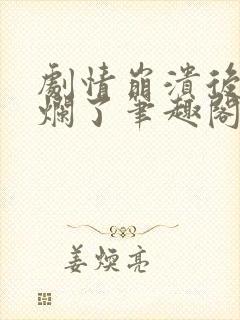 劇情崩潰後
爛了筆趣閣
姜煥亮